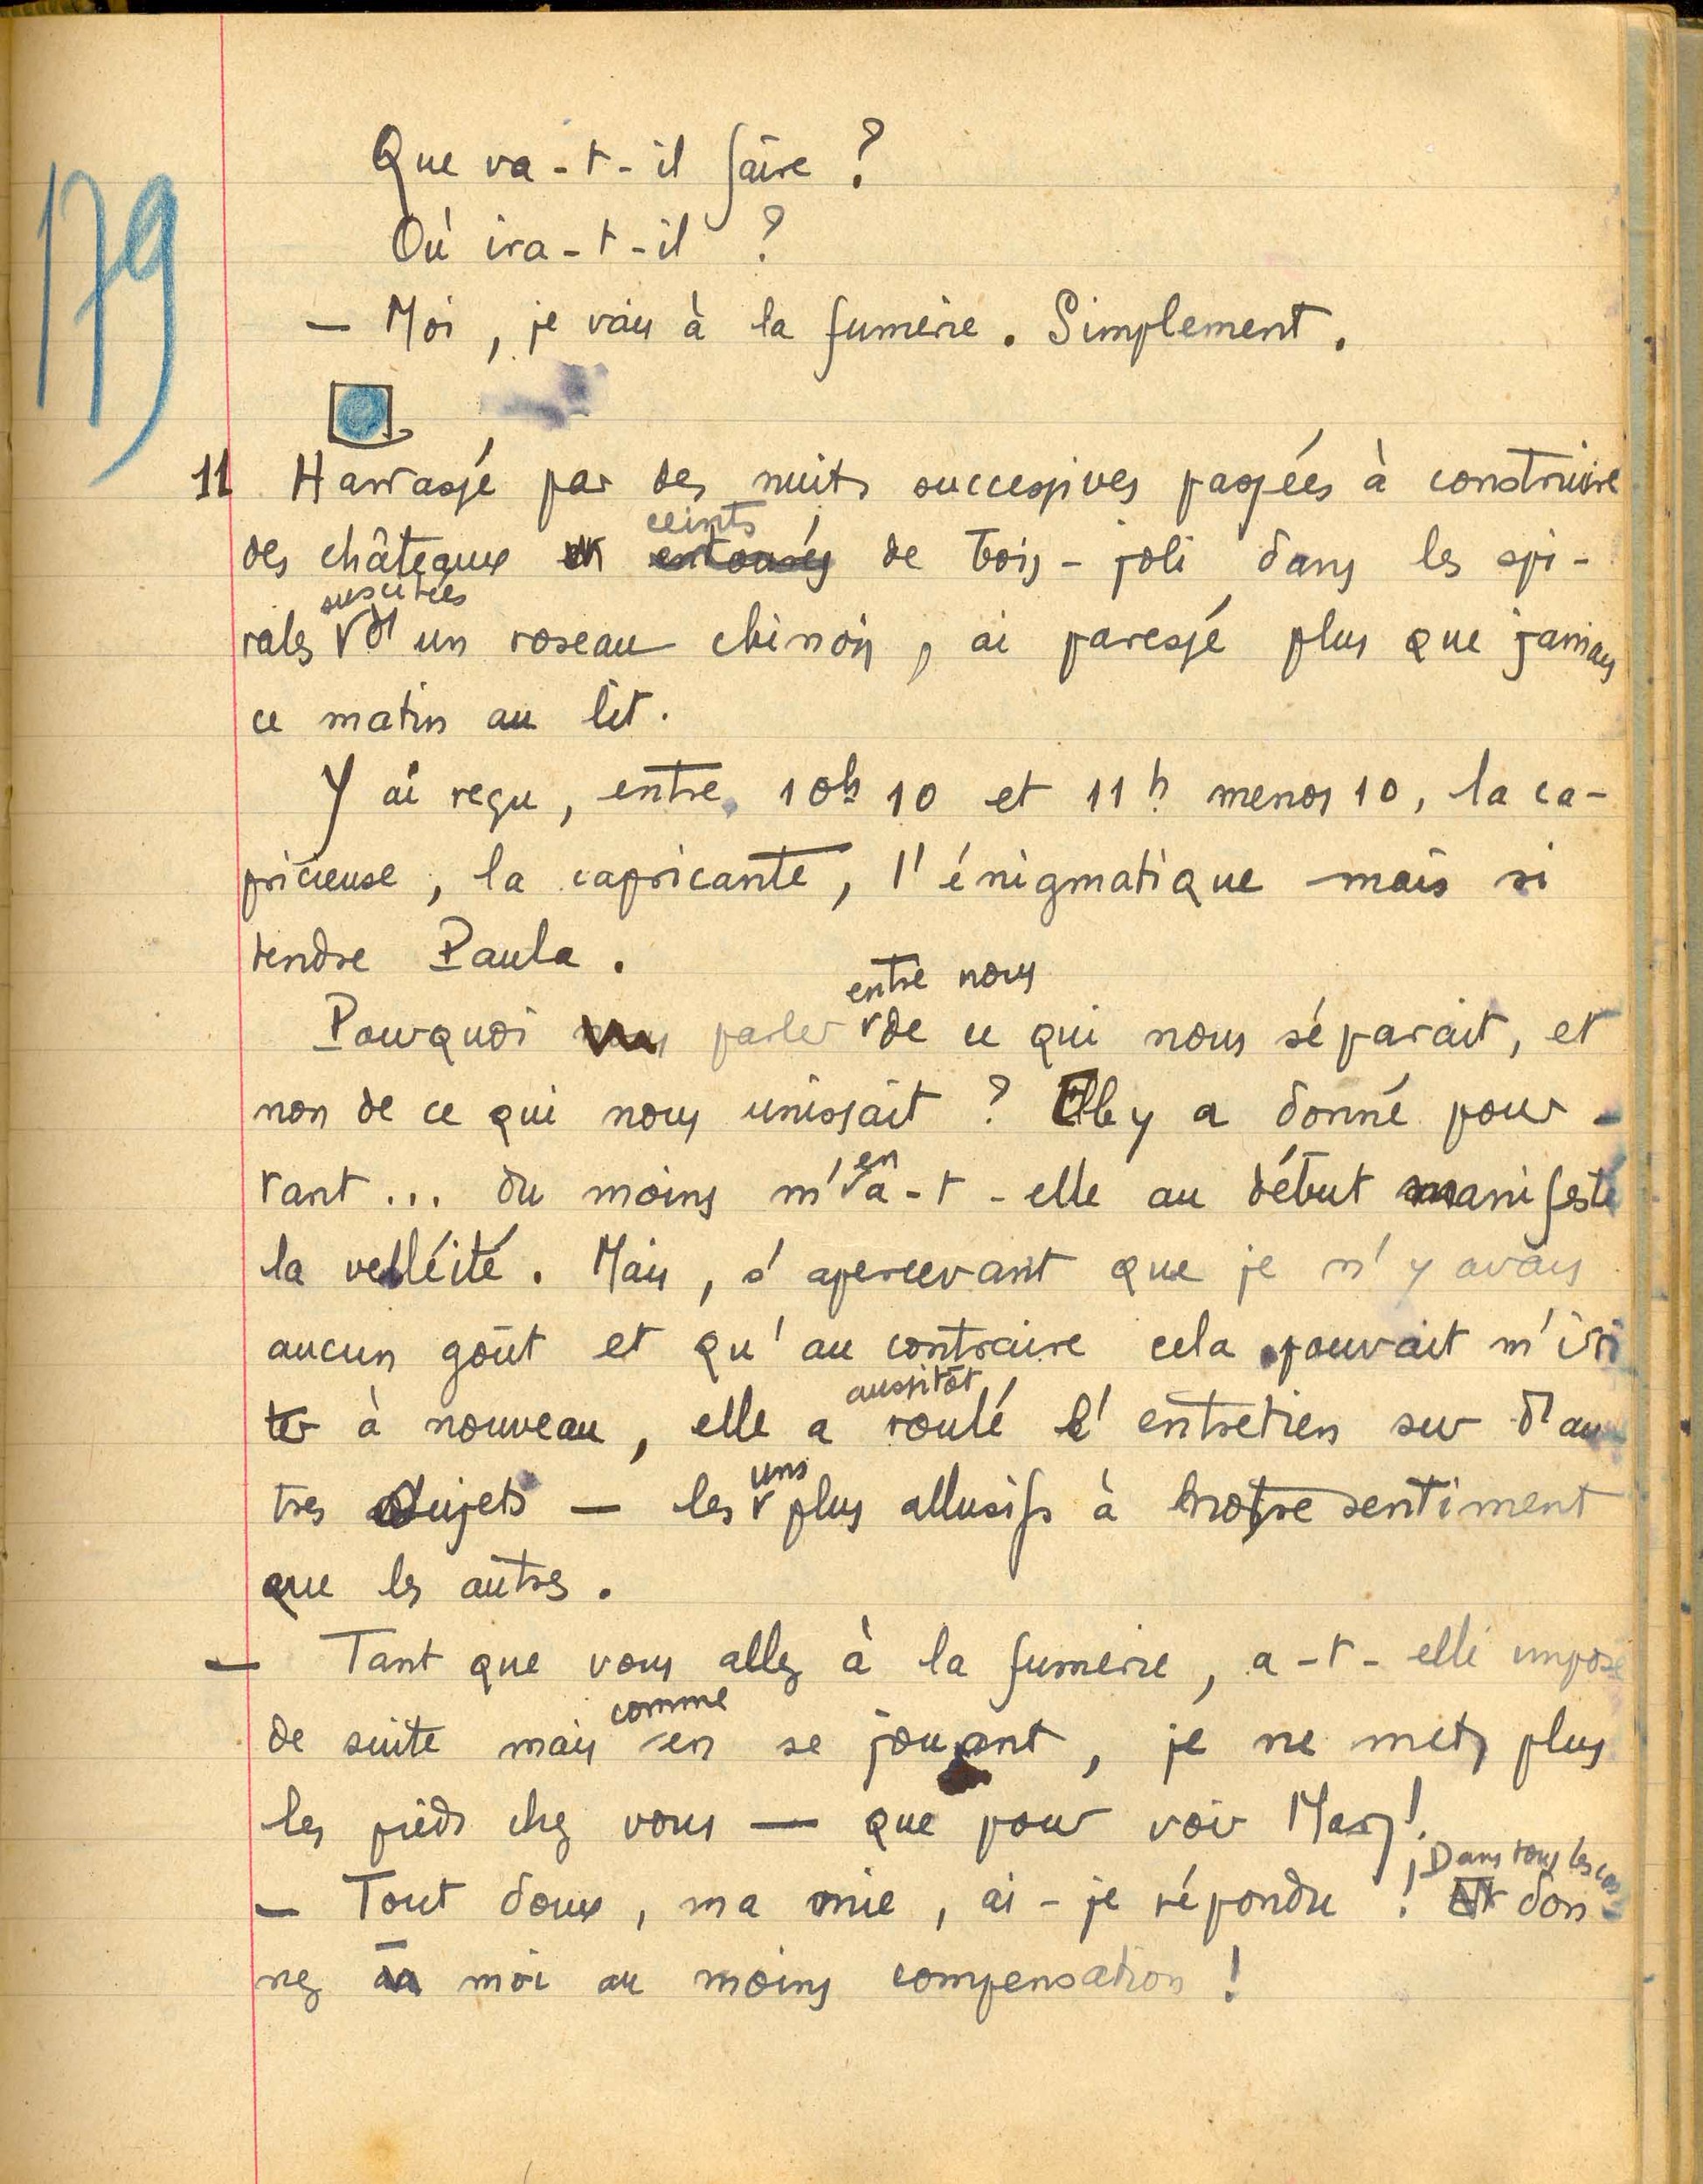 179
Que va-t-il faire ?
Où ira-t-il ?
— Moi, je vais à la fumerie. Simplement.
11 Harrassé par des nuits successives passées à construire
ceints
des châteaux entourés de bois-joli dans les spi-
suscitées
rales d'un roseau chinois, ai paressé plus que jamais
ce matin au lit.
Y ai reçu, entre 10h 10 et 11h menos 10, la ca-
pricieuse, la capricante, l'énigmatique mais si
tendre Paula.
entre nous
Pourquoi parler de ce qui nous séparait, et
non de ce qui nous unissait ? Elle y a donné pour-
en
tant... du moins m'a-t-elle au début manifesté
la velléité. Mais, s'apercevant que je n'y avais
aucun goût et qu'au contraire cela pouvait m'irri
aussitôt
ter à nouveau, elle a roulé l'entretien sur d'au
uns
tres sujets — les plus allusifs à notre sentiment
que les autres.
— Tant que vous allez à la fumerie, a-t-elle imposé
comme
de suite mais en se jouant, je ne mets plus
les pieds chez vous — que pour voir Mary !
Dans tous les cas
— Tout doux, ma mie, ai-je répondu ! don-
nez moi au moins compensation !